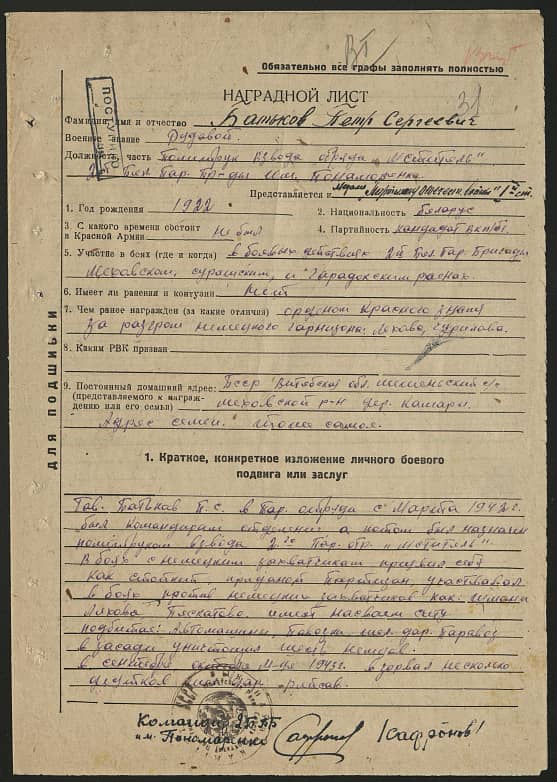 Обязательно все графы заполнять полностью
31
НАГРАДНОЙ ЛИСТ
Фамилия, имя и отчество Батьков Петр Сергеевич
Военное звание Рудавой
Должность, часть Политрук взвода отряда „Мститель"
2й Бел. Пар. Бр-ды им. Панамаренка
Представляется к медали „Партизану Отечествен. войны" I й ст.
1. Год рождения 1922
2. Национальность Беларус
3. С какого времени состоит в Красной Армии не был
4. Партийность кандидат ВКП/б/.
5. Участие в боях (где и когда) в боевых действиях 2й Бел Пар. Бригады
Меховском, сурашским, и Гарадокским раенах.
6. Имеет ли ранения и контузии Нет
7. Чем ранее награжден (за какие отличия) орденом Красного знамя
за разгром немецкого гарнизона
8. Каким РВК призван
9. Постоянный домашний адрес: БССР Витебской обл. с/с
(представляемого к награж-
дению или его семьи) Меховской р-н дер.
Адрес семьи.
ДЛЯ ПОДШИВКИ
1. Краткое, конкретное изложение личного боевого
подвига или заслуг
Тов. Батьков П. С. в пар. отряде с Марта 1942 г.
был командирам отделения а потом был назначен
политруком взвода 2го Пар. отр. „Мститель"
В боях с немецким захватчикам себя
как стойкий, партизан, участвавал
в боях против немецких захватчиков как:
имеет на своем счету
подбитае: Автомашини, Павозка, жел. дар. Паравоз
в засади уничтожил шесть немцов.
в сентябре м-це 1943 г. взорвал несколько
десятков жел дар рельсав.
Командир 2 БПБ
им. Пономаренко /Сафронов/